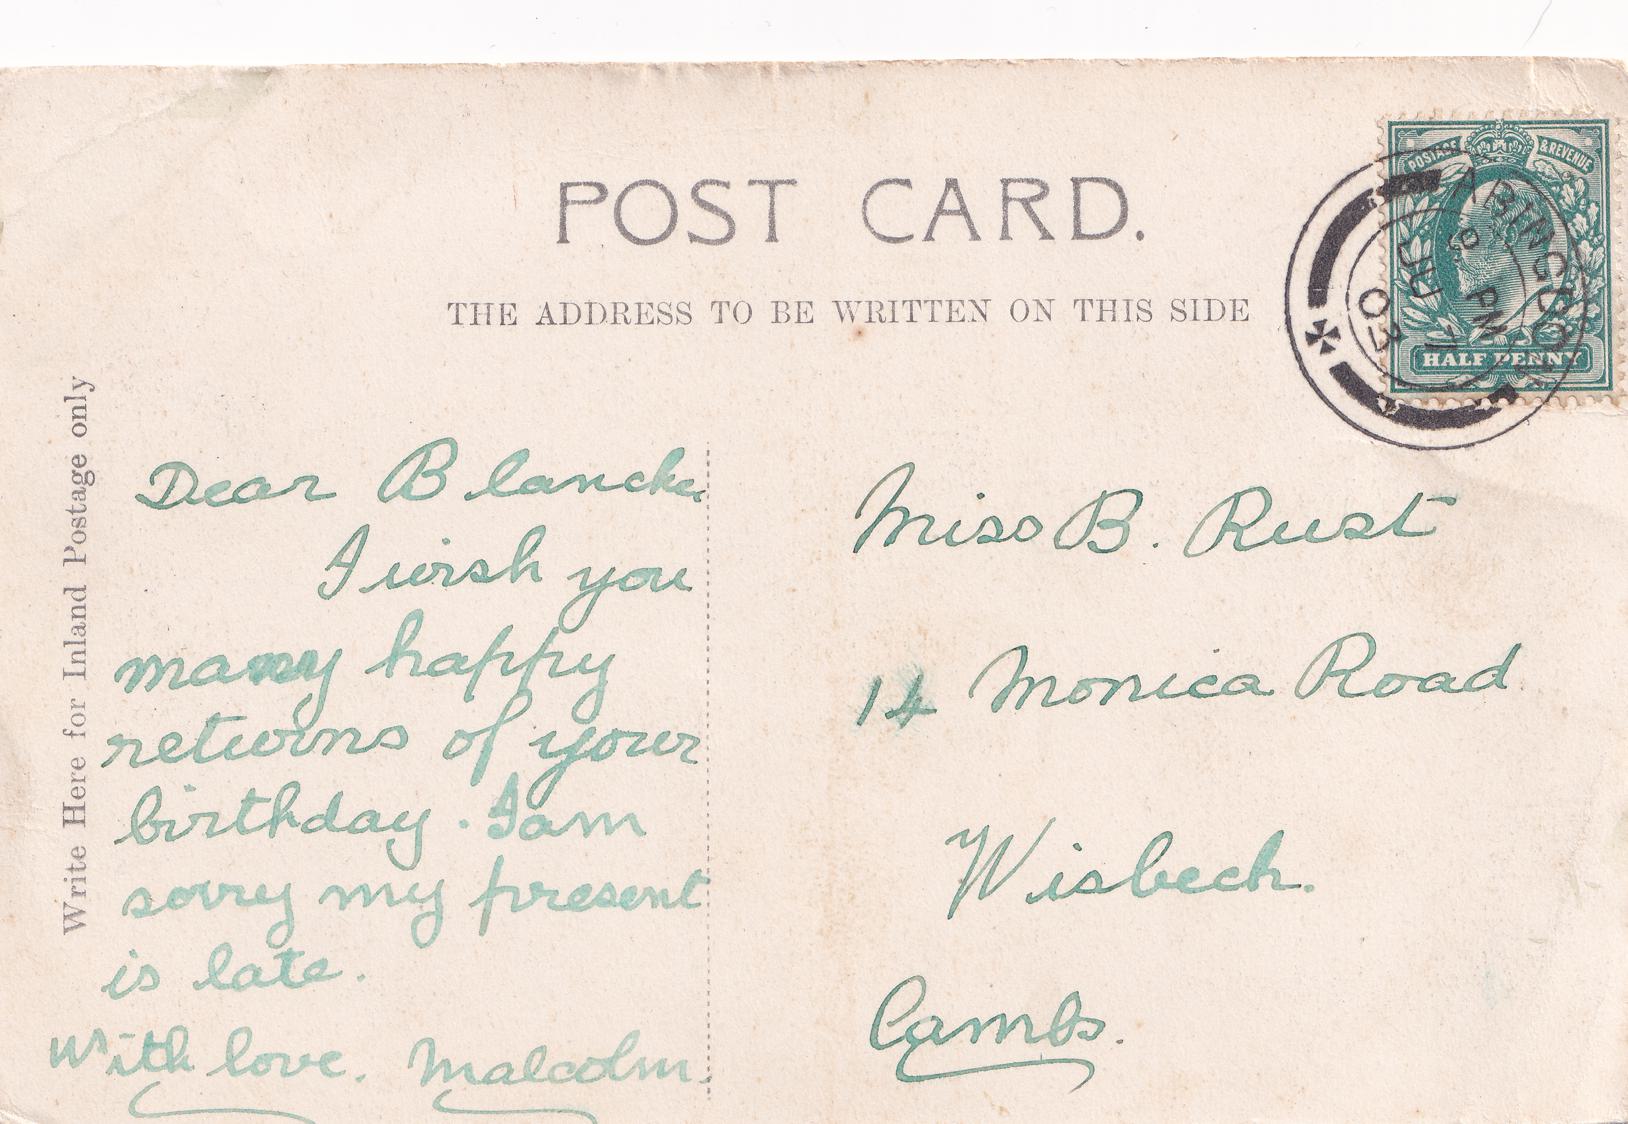 POST CARD.
THE ADDRESS TO BE WRITTEN ON THIS SIDE
POSTAGE & REVENUE
HALF PENNY
ABINGDON
8 PM
JU 7
03
Write Here for Inland Postage only
Dear Blanche
I wish you
many happy
returns of your
birthday. I am
sorry my present
is late.
With love. Malcolm.
Miss B. Rust
14 Monica Road
Wisbech.
Cambs.